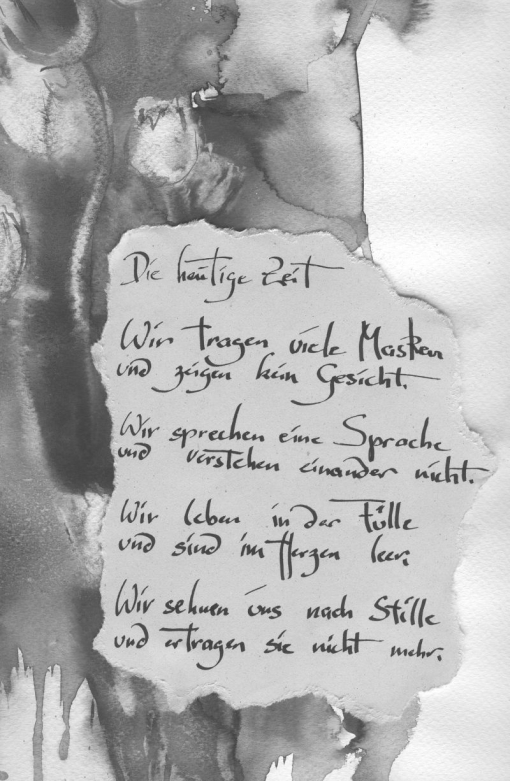 Die heutige Zeit
Wir tragen viele Masken
und zeigen kein Gesicht.
Wir sprechen eine Sprache
und verstehen einander nicht.
Wir leben in der Fülle
und sind im Herzen leer.
Wir sehnen uns nach Stille
und ertragen sie nicht mehr.